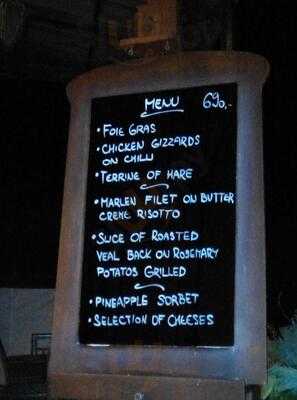 MENU 690,-
• FOIE GRAS
• CHICKEN GIZZARDS
ON CHILLI
• TERRINE OF HARE
• MARLEN FILET ON BUTTER
CREME RISOTTO
• SLICE OF ROASTED
VEAL BACK ON ROSEMARY
POTATOS GRILLED
• PINEAPPLE SORBET
• SELECTION OF CHEESES